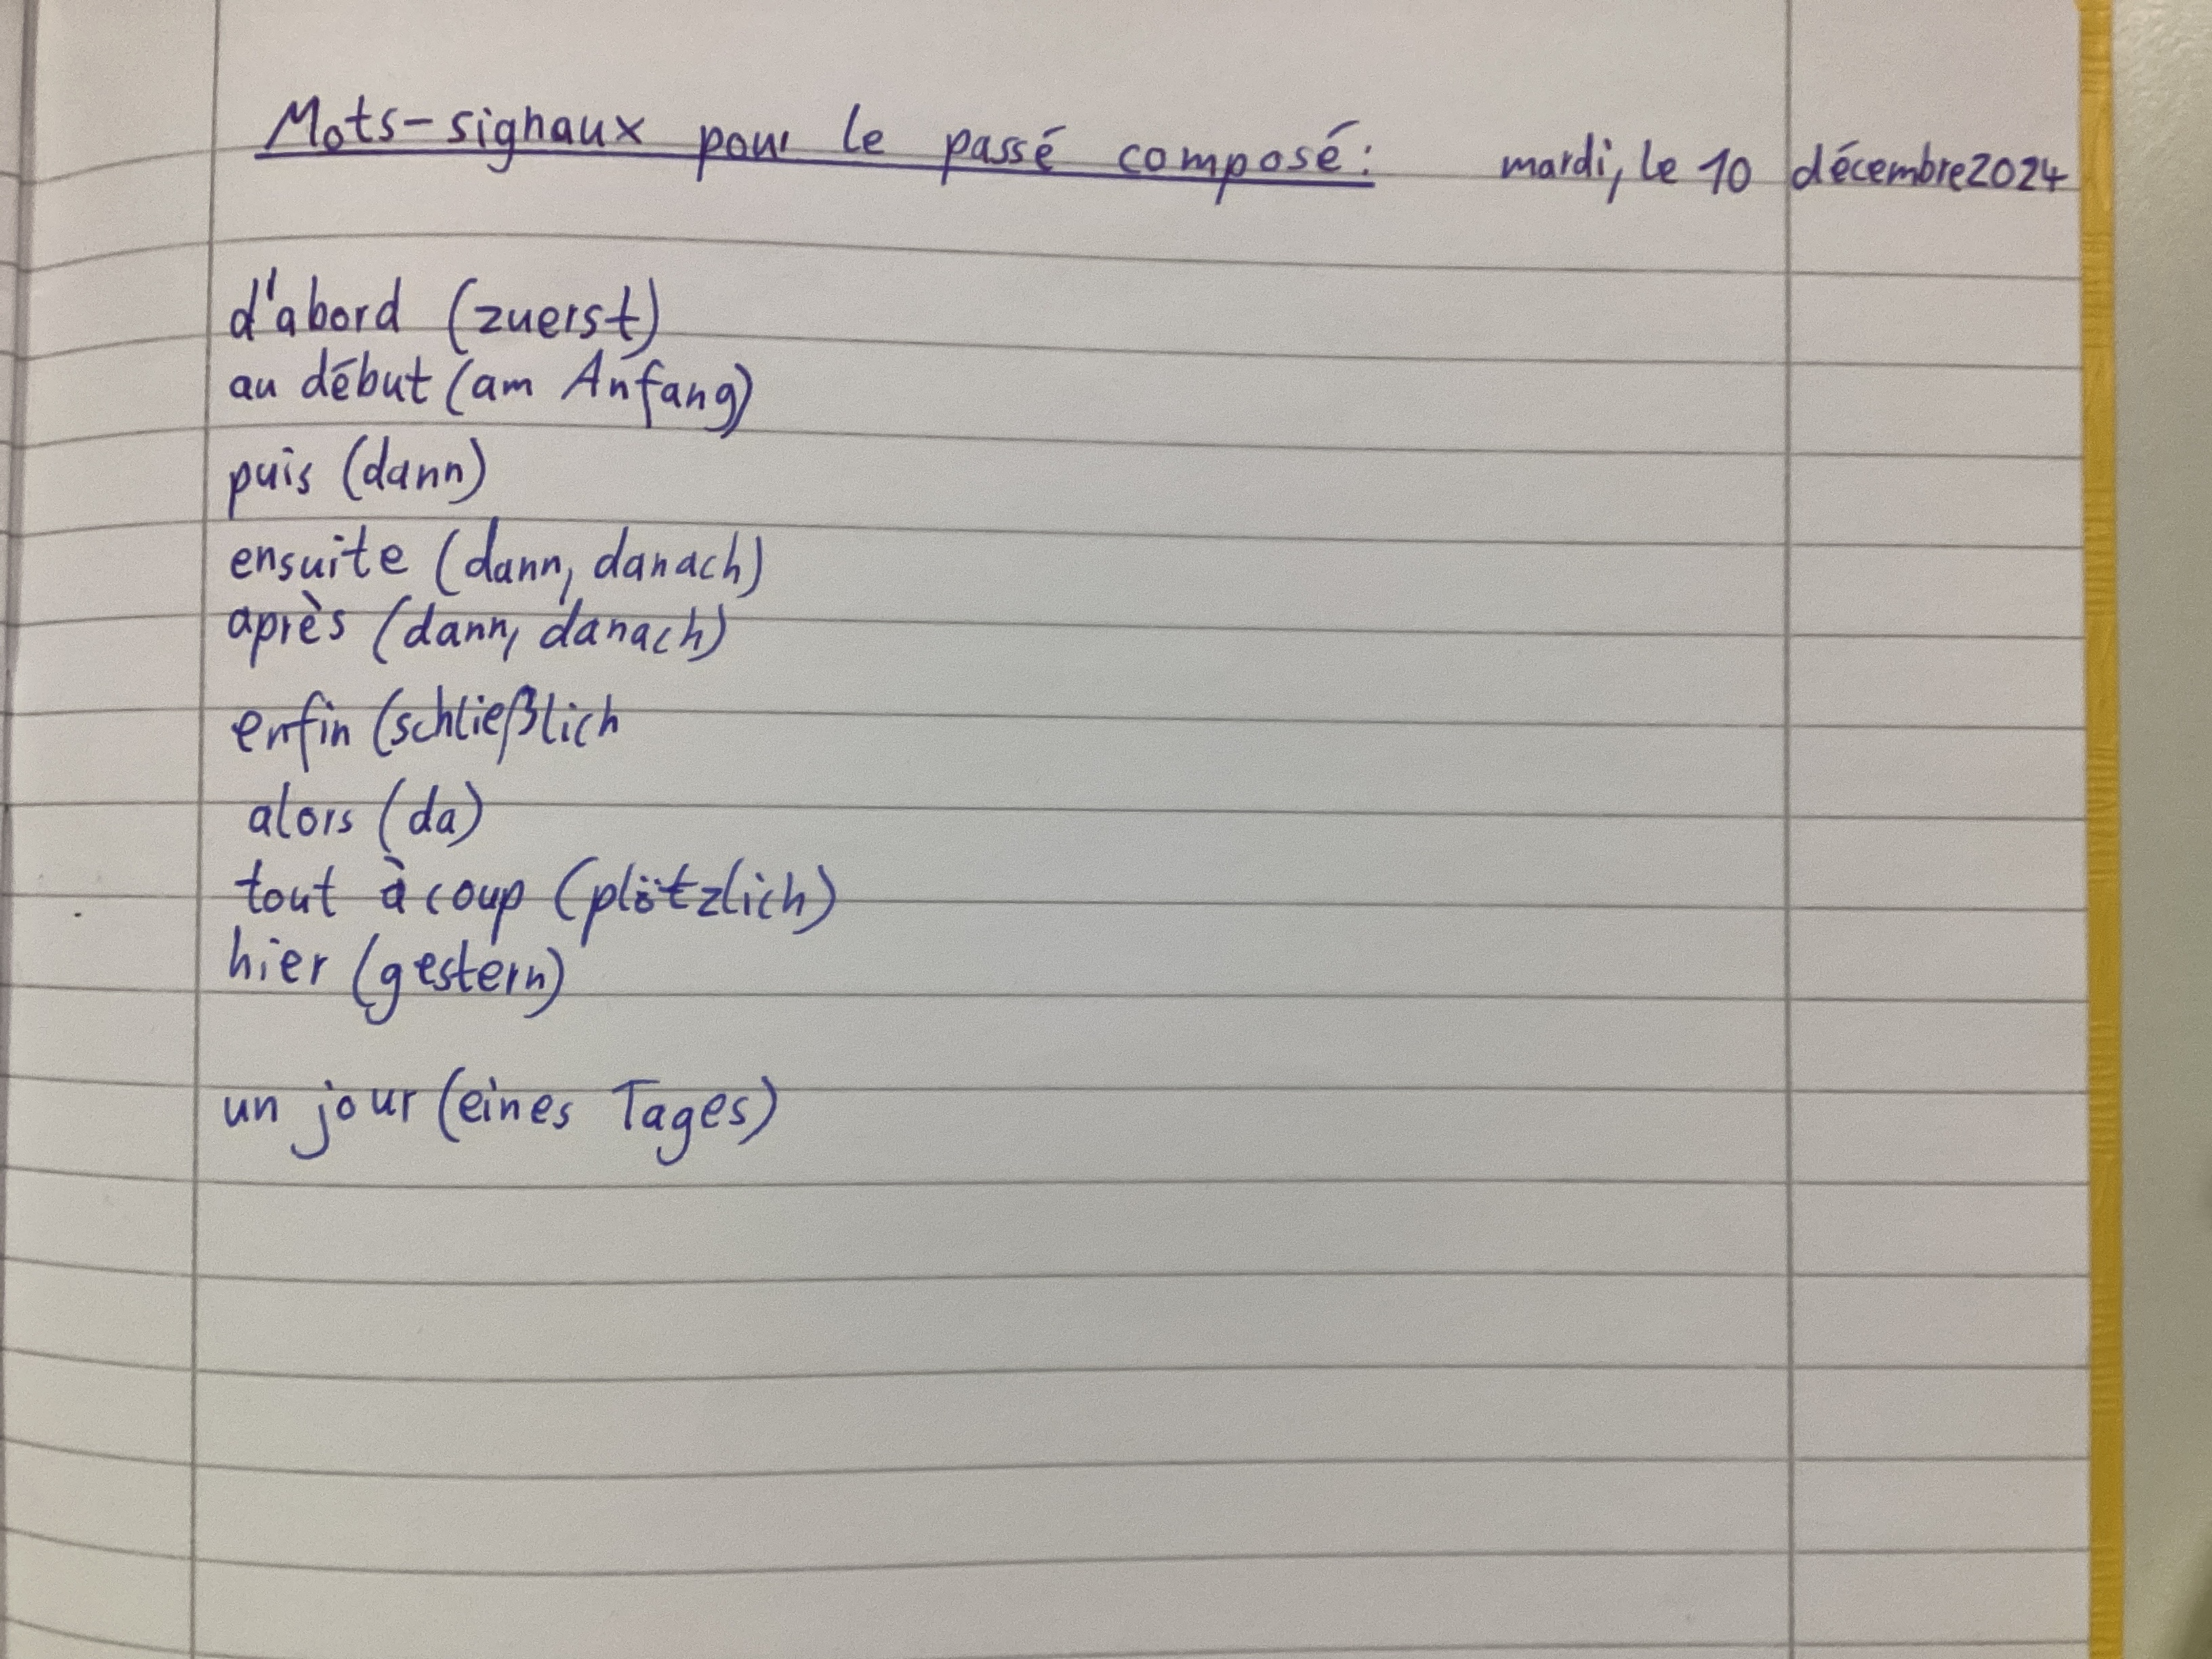 Mots-signaux pour le passé composé: mardi, le 10 décembre 2024
d'abord (zuerst)
au début (am Anfang)
puis (dann)
ensuite (dann, danach)
après (dann, danach)
enfin (schließlich
alors (da)
tout à coup (plötzlich)
hier (gestern)
un jour (eines Tages)